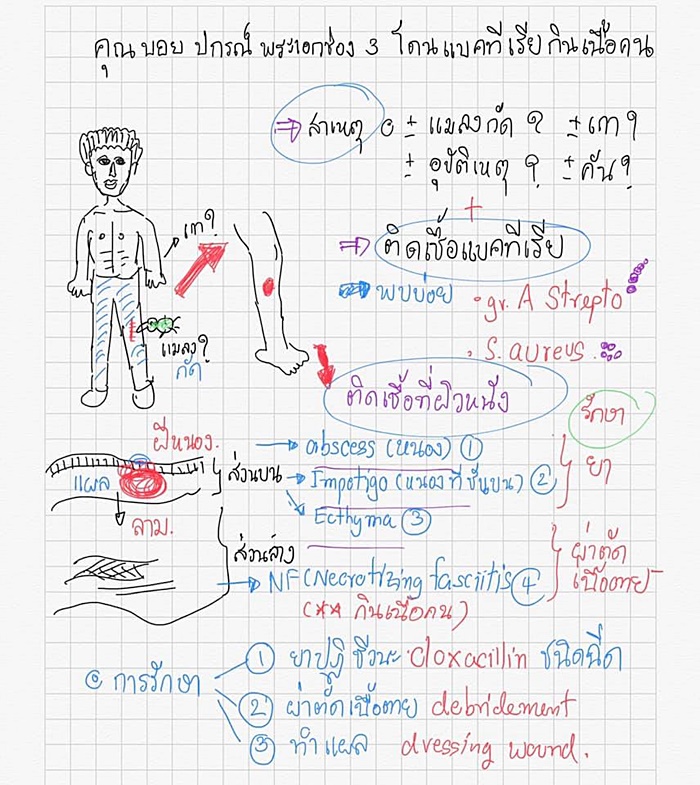 คุณบอย ปกรณ์ พระเอกช่อง 3 โดนแบคทีเรียกินเนื้อคน
⇒ สาเหตุ ๏ ± แมลงกัด ? ± เกา ?
± อุบัติเหตุ ? ± คัน ?
+
เกา ?
⇒ ติดเชื้อแบคทีเรีย
พบบ่อย • gr. A Strepto
แมลง ?
กัด
• S. aureus.
ติดเชื้อที่ผิวหนัง
รักษา
ฝีหนอง.
→ abscess (หนอง) ①
แผล
ส่วนบน → Impetigo (หนองที่ชั้นบน) ② } ยา
ลาม.
Ecthyma ③
ส่วนล่าง
→ NF (Necrotizing fasciitis ④ } ผ่าตัด
เนื้อตาย
(** กินเนื้อคน)
๏ การรักษา
① ยาปฏิชีวนะ cloxacillin ชนิดฉีด
② ผ่าตัดเนื้อตาย debridement
③ ทำแผล dressing wound.